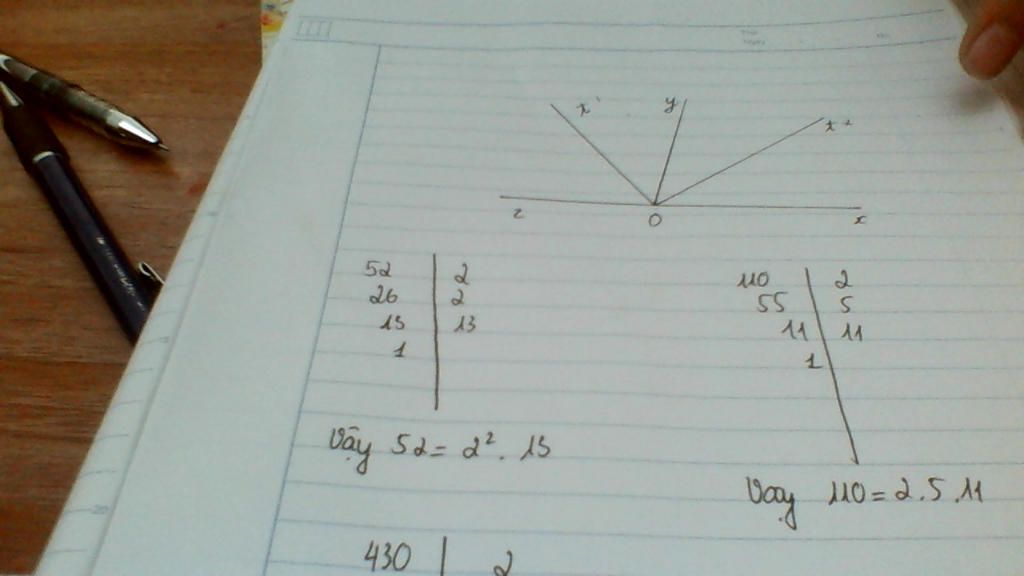 x' y x²
z O x
52 2
26 2
13 13
1
110 2
55 5
11 11
1
Vậy 52 = 2² . 13
Vậy 110 = 2.5.11
430 2